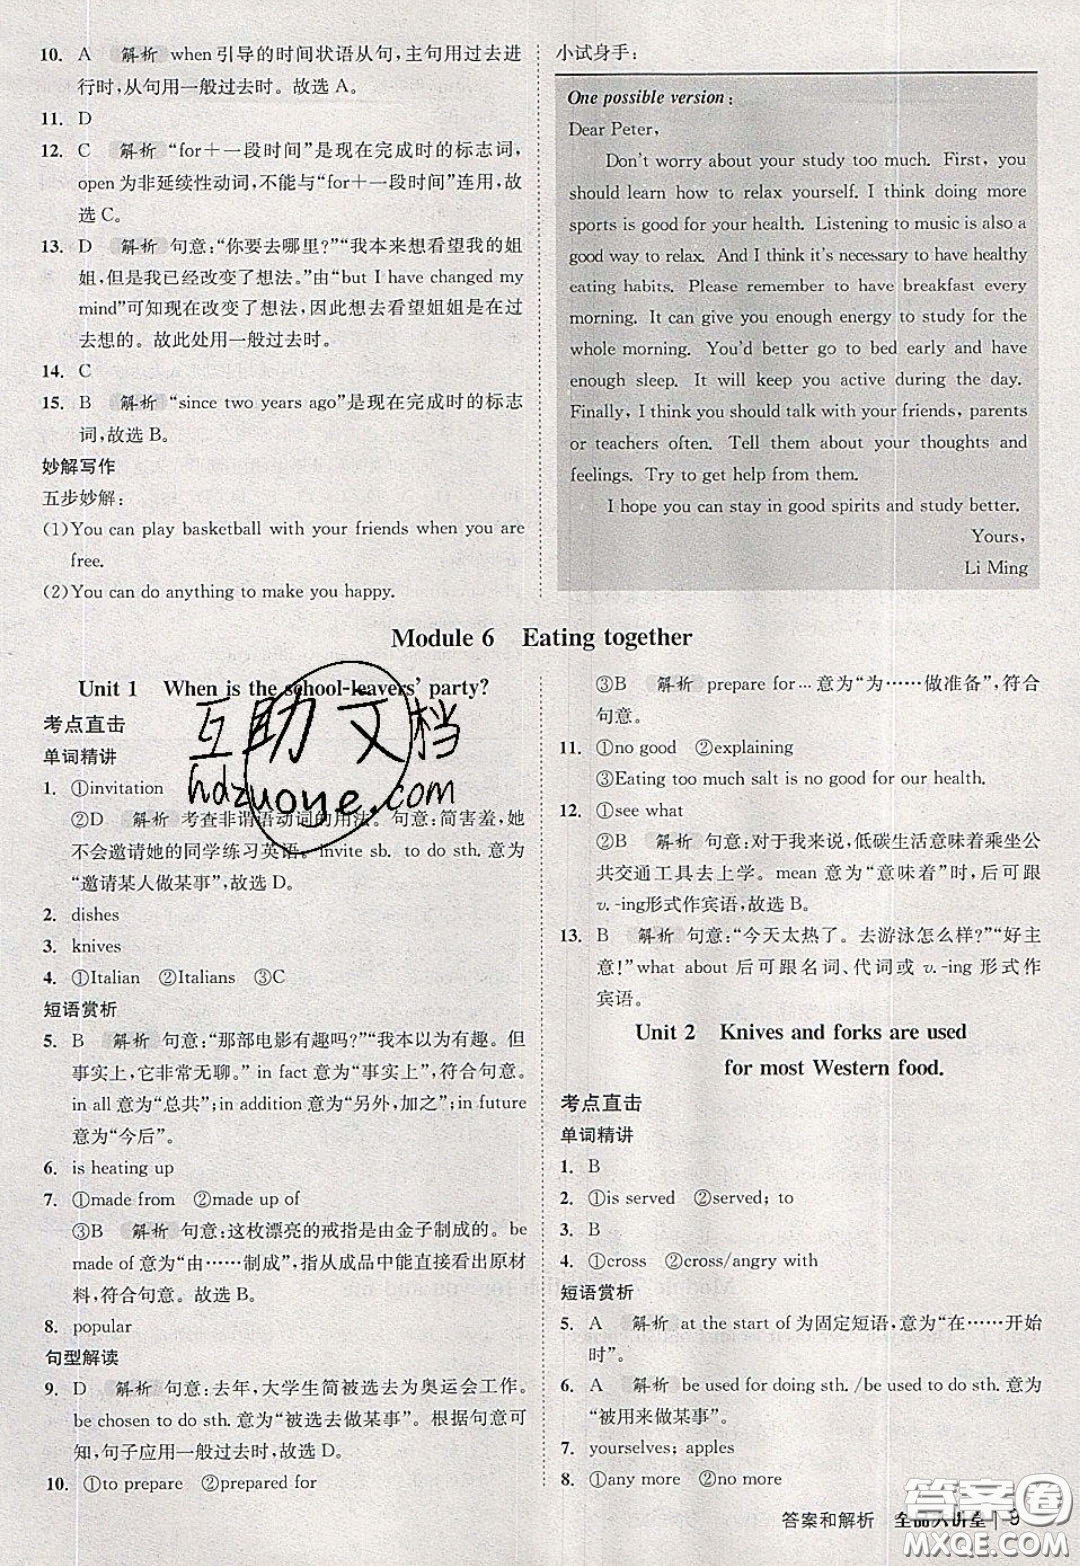 10. A 解析 when引导的时间状语从句,主句用过去进
行时,从句用一般过去时。故选A。
11. D
12. C 解析 “for+一段时间”是现在完成时的标志词,
open为非延续性动词,不能与“for+一段时间”连用,故
选C。
13. D 解析 句意:“你要去哪里?”“我本来想看望我的姐
姐,但是我已经改变了想法。”由“but I have changed my
mind”可知现在改变了想法,因此想去看望姐姐是在过
去想的。故此处用一般过去时。
14. C
15. B 解析 “since two years ago”是现在完成时的标志
词,故选B。
妙解写作
五步妙解:
(1)You can play basketball with your friends when you are
free.
(2)You can do anything to make you happy.
小试身手:
One possible version:
Dear Peter,
Don't worry about your study too much. First, you
should learn how to relax yourself. I think doing more
sports is good for your health. Listening to music is also a
good way to relax. And I think it's necessary to have healthy
eating habits. Please remember to have breakfast every
morning. It can give you enough energy to study for the
whole morning. You'd better go to bed early and have
enough sleep. It will keep you active during the day.
Finally, I think you should talk with your friends, parents
or teachers often. Tell them about your thoughts and
feelings. Try to get help from them.
I hope you can stay in good spirits and study better.
Yours,
Li Ming
Module 6 Eating together
Unit 1 When is the school-leavers' party?
考点直击
单词精讲
1. ①invitation
②D 解析 考查非谓语动词的用法。句意:简害羞,她
不会邀请她的同学练习英语。invite sb. to do sth.意为
“邀请某人做某事”,故选D。
2. dishes
3. knives
4. ①Italian ②Italians ③C
短语赏析
5. B 解析 句意:“那部电影有趣吗?”“我本以为有趣。但
事实上,它非常无聊。”in fact意为“事实上”,符合句意。
in all意为“总共”;in addition意为“另外,加之”;in future
意为“今后”。
6. is heating up
7. ①made from ②made up of
③B 解析 句意:这枚漂亮的戒指是由金子制成的。be
made of意为“由……制成”,指从成品中能直接看出原材
料,符合句意。故选B。
8. popular
句型解读
9. D 解析 句意:去年,大学生简被选去为奥运会工作。
be chosen to do sth.意为“被选去做某事”。根据句意可
知,句子应用一般过去时,故选D。
10. ①to prepare ②prepared for
③B 解析 prepare for…意为“为……做准备”,符合
句意。
11. ①no good ②explaining
③Eating too much salt is no good for our health.
12. ①see what
②B 解析 句意:对于我来说,低碳生活意味着乘坐公
共交通工具去上学。mean意为“意味着”时,后可跟
v.-ing形式作宾语,故选B。
13. B 解析 句意:“今天太热了。去游泳怎么样?”“好主
意!”what about后可跟名词、代词或v.-ing形式作
宾语。
Unit 2 Knives and forks are used
for most Western food.
考点直击
单词精讲
1. B
2. ①is served ②served; to
3. B
4. ①cross ②cross/angry with
短语赏析
5. A 解析 at the start of为固定短语,意为“在……开始
时”。
6. A 解析 be used for doing sth./be used to do sth.意为
“被用来做某事”。
7. yourselves; apples
8. ①any more ②no more
答案和解析 全品大讲堂 9
互助文档
hdzuoye.com
答案圈
MXQE.COM